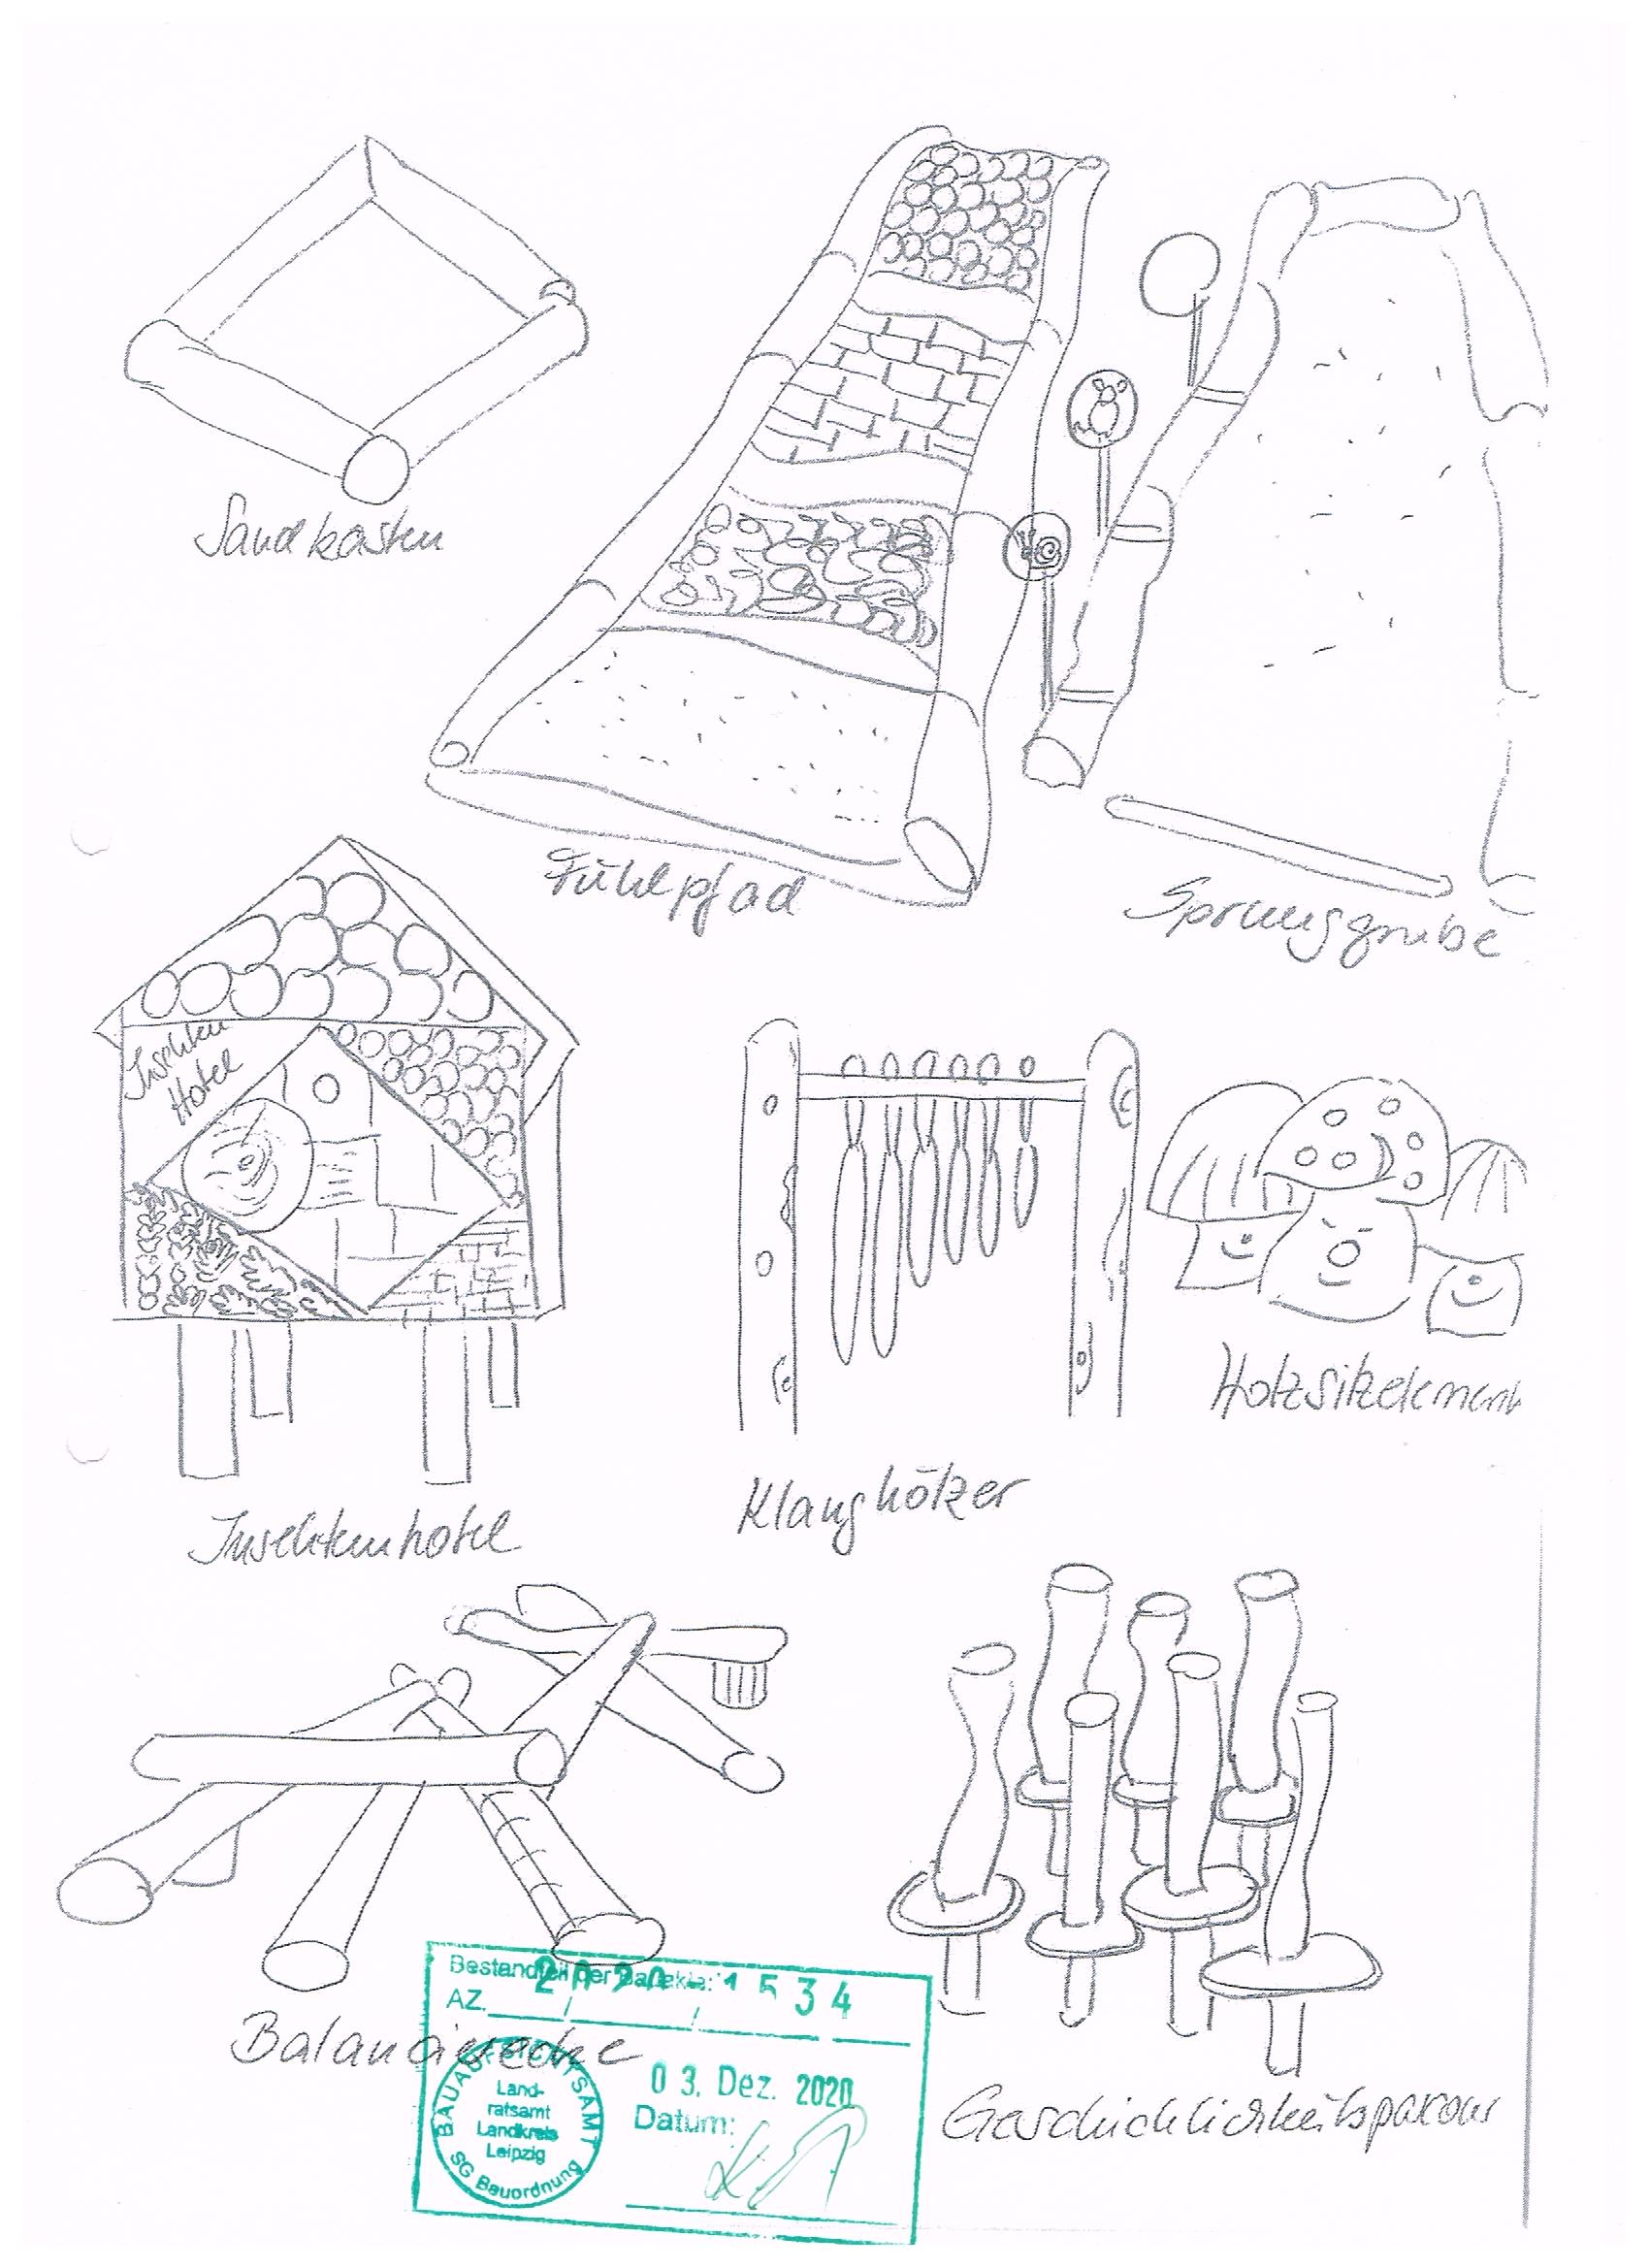 Sandkasten
Fühlpfad
Sprunggrube
Insekten
Hotel
Holzsitzelement
Klanghölzer
Insektenhotel
Balancierecke
Geschicklichkeitsparcour
Bestandteil der Bauakte:
AZ. 2020 - 1534
03. Dez. 2020
Datum:
BAUAUFSICHTSAMT
Land-
ratsamt
Landkreis
Leipzig
SG Bauordnung